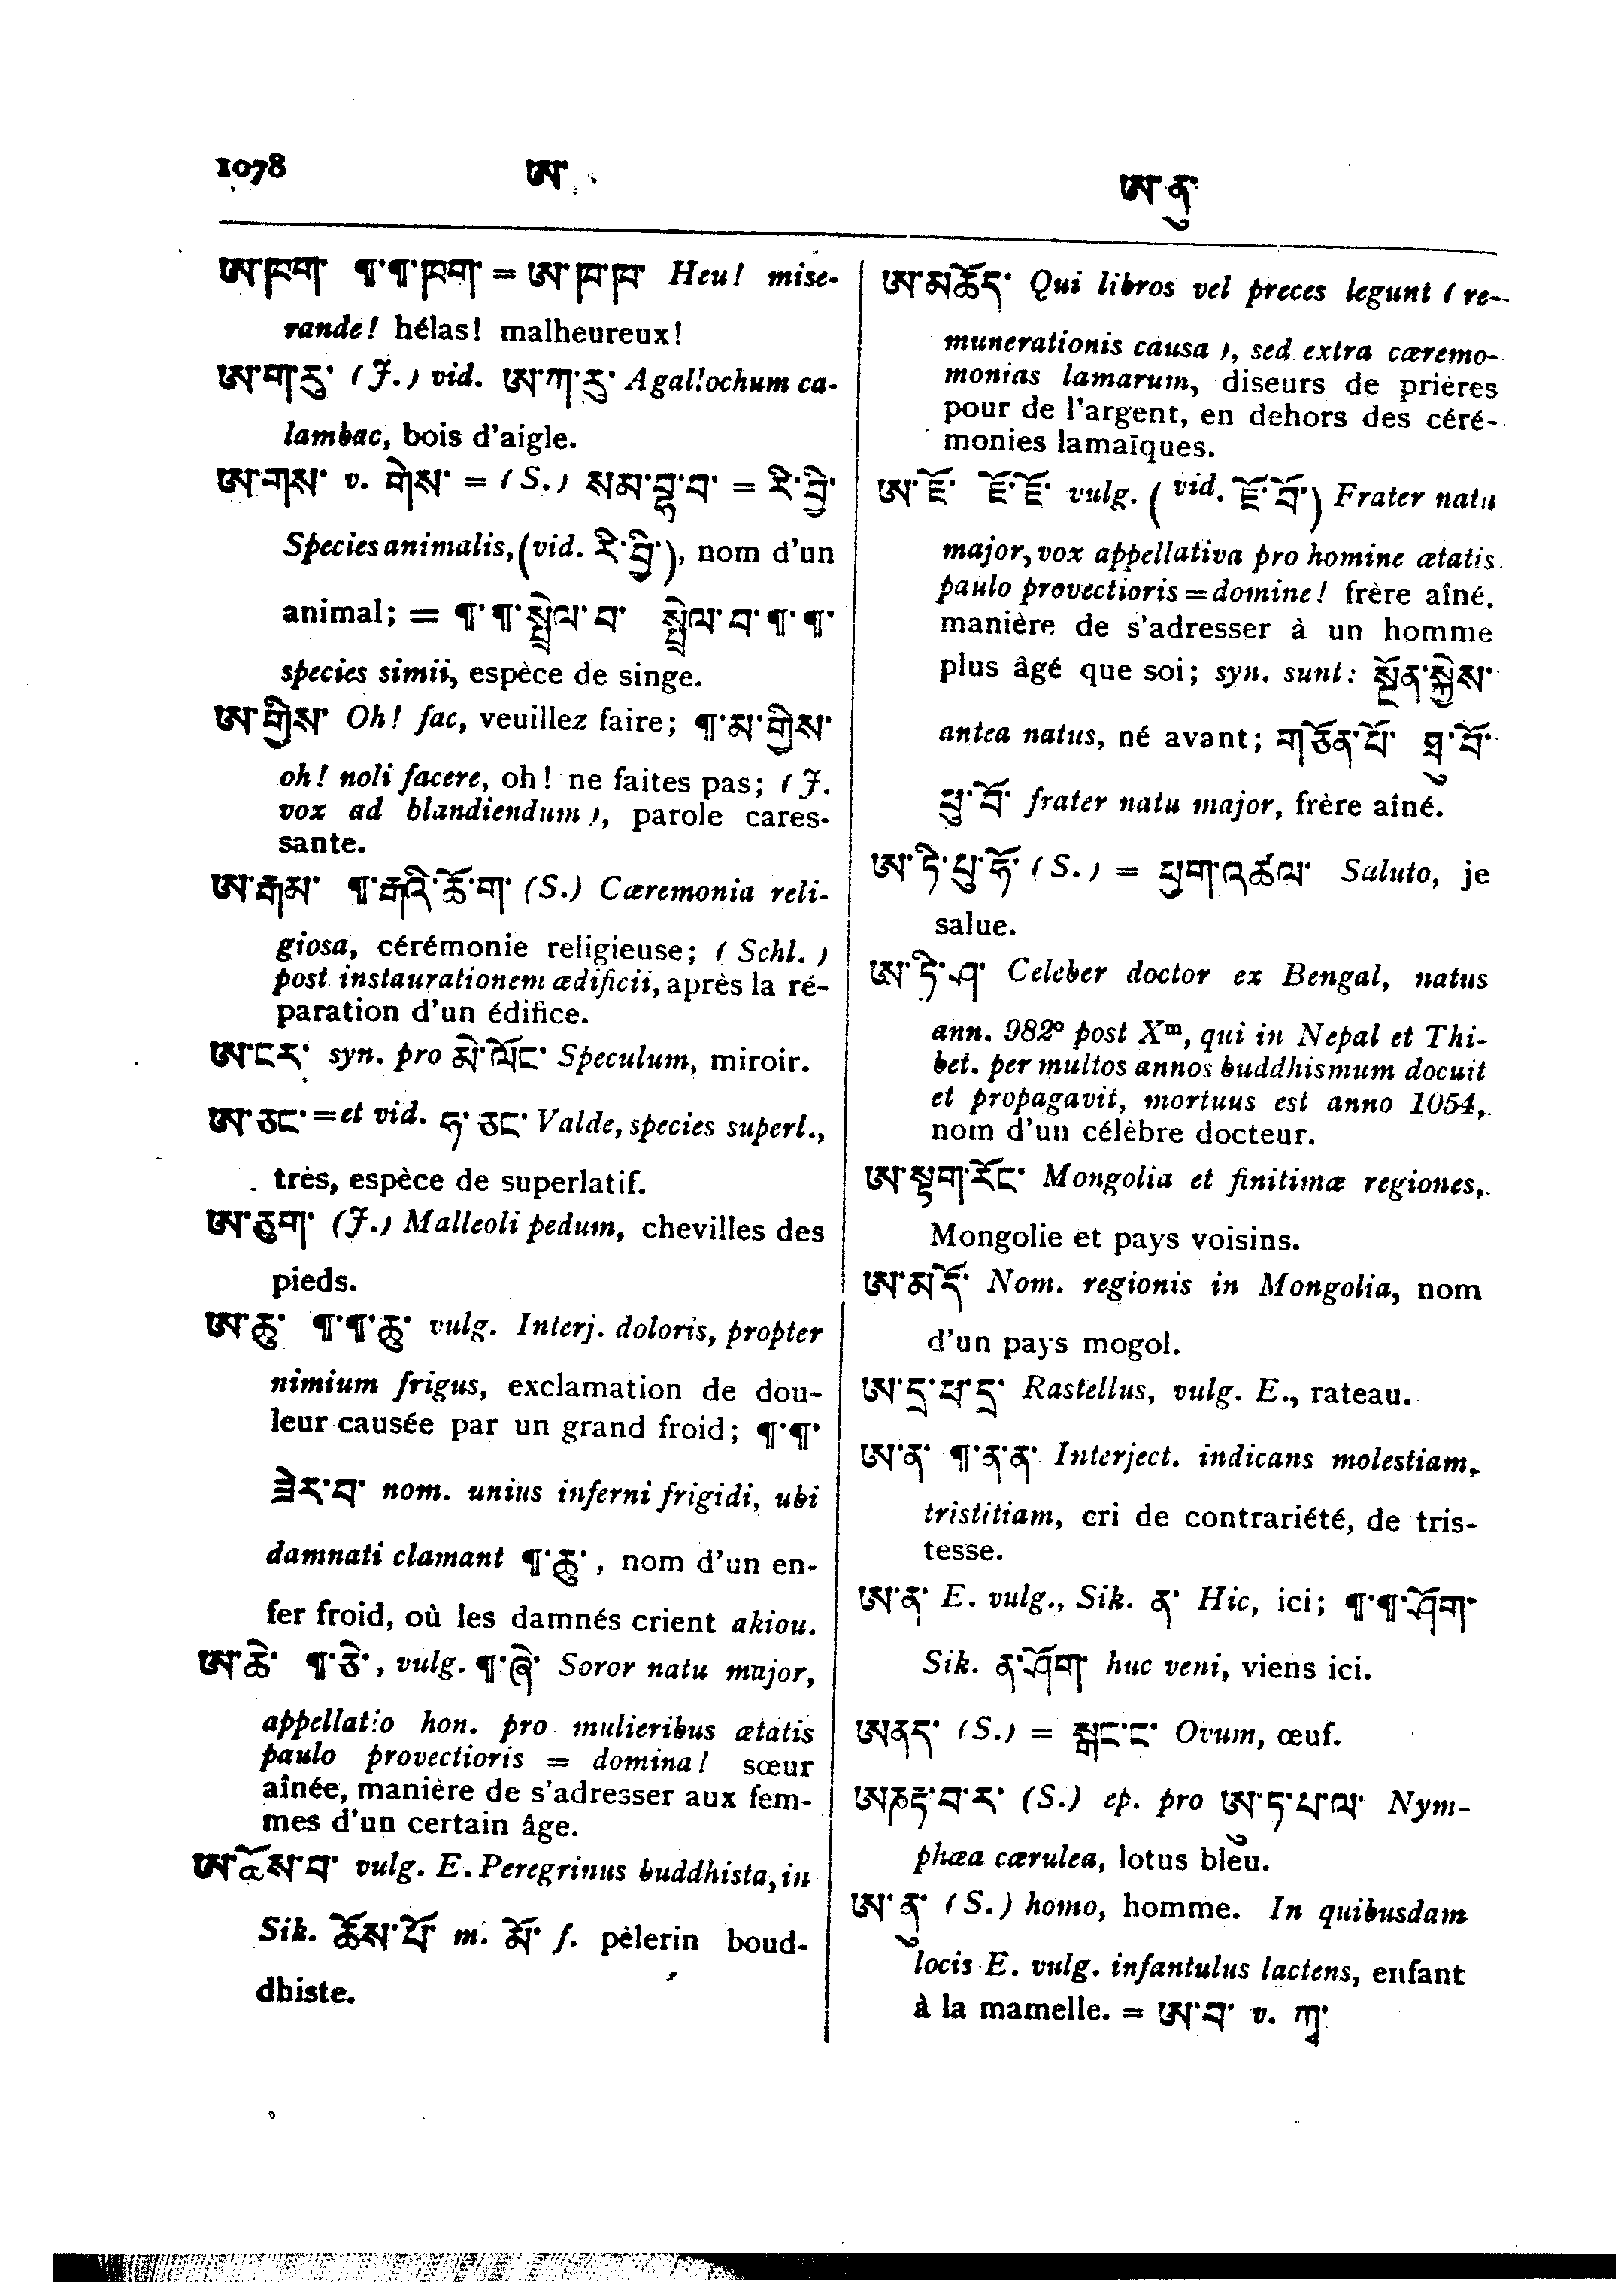 1078 ཨ་ ཨ་ནུ་
ཨ་ཁག་ ¶་¶་ཁག་ = ཨ་ཁ་ཁ་ Heu! mise-
rande! hélas! malheureux!
ཨ་གརུ་ (J.) vid. ཨ་ཀ་རུ་ Agallochum ca-
lambac, bois d'aigle.
ཨ་གས་ v. གེས་ = (S.) སམ་བྷ་བ་ = རི་བྱི་
Species animalis, (vid. རི་བྱི་), nom d'un
animal; = ¶་¶་སྤྲེལ་བ་ སྤྲེལ་བ་¶་¶་
species simii, espèce de singe.
ཨ་གྱིས་ Oh! fac, veuillez faire; ¶་མ་གྱིས་
oh! noli facere, oh! ne faites pas; (J.
vox ad blandiendum), parole cares-
sante.
ཨ་རྒམ་ ¶་རྒའི་ཆོ་ག་ (S.) Cæremonia reli-
giosa, cérémonie religieuse; (Schl.)
post instaurationem ædificii, après la ré-
paration d'un édifice.
ཨ་ངར་ syn. pro མེ་ལོང་ Speculum, miroir.
ཨ་ཅང་ = et vid. ཧ་ཅང་ Valde, species superl.,
très, espèce de superlatif.
ཨ་ཅུག་ (J.) Malleoli pedum, chevilles des
pieds.
ཨ་ཆུ་ ¶་¶་ཆུ་ vulg. Interj. doloris, propter
nimium frigus, exclamation de dou-
leur causée par un grand froid; ¶་¶་
ཟེར་བ་ nom. unius inferni frigidi, ubi
damnati clamant ¶་ཆུ་, nom d'un en-
fer froid, où les damnés crient akiou.
ཨ་ཆེ་ ¶་ཅེ་, vulg. ¶་ཞེ་ Soror natu major,
appellatio hon. pro mulieribus ætatis
paulo provectioris = domina! sœur
aînée, manière de s'adresser aux fem-
mes d'un certain âge.
ཨ་ཆོས་བ་ vulg. E. Peregrinus buddhista, in
Sik. ཆོས་པོ་ m. མོ་ f. pèlerin boud-
dhiste.
ཨ་མཆོད་ Qui libros vel preces legunt (re-
munerationis causa), sed extra cæremo-
monias lamarum, diseurs de prières
pour de l'argent, en dehors des céré-
monies lamaïques.
ཨ་ཇོ་ ཇོ་ཇོ་ vulg. (vid. ཇོ་བོ་) Frater natu
major, vox appellativa pro homine ætatis
paulo provectioris = domine! frère aîné,
manière de s'adresser à un homme
plus âgé que soi; syn. sunt: སྔོན་སྐྱེས་
antea natus, né avant; གཅེན་པོ་ ཐུ་བོ་
ཕུ་བོ་ frater natu major, frère aîné.
ཨ་ཏི་པུ་ཧོ་ (S.) = ཕྱག་འཚལ་ Saluto, je
salue.
ཨ་ཏི་ཤ་ Celeber doctor ex Bengal, natus
ann. 982° post Xᵐ, qui in Nepal et Thi-
bet. per multos annos buddhismum docuit
et propagavit, mortuus est anno 1054,
nom d'un célèbre docteur.
ཨ་སྟག་རོང་ Mongolia et finitimæ regiones,
Mongolie et pays voisins.
ཨ་མདོ་ Nom. regionis in Mongolia, nom
d'un pays mogol.
ཨ་དྲ་ཕ་དྲ་ Rastellus, vulg. E., rateau.
ཨ་ན་ ¶་ན་ན་ Interject. indicans molestiam,
tristitiam, cri de contrariété, de tris-
tesse.
ཨ་ན་ E. vulg., Sik. ན་ Hic, ici; ¶་¶་ཤོག་
Sik. ན་ཤོག་ huc veni, viens ici.
ཨནད་ (S.) = སྒང་ང་ Ovum, œuf.
(S.) ep. pro ཨུ་ཏ་པ་ལ་ Nym-
phæa cærulea, lotus bleu.
ཨ་ནུ་ (S.) homo, homme. In quibusdam
locis E. vulg. infantulus lactens, enfant
à la mamelle. = ཨ་བ་ v.